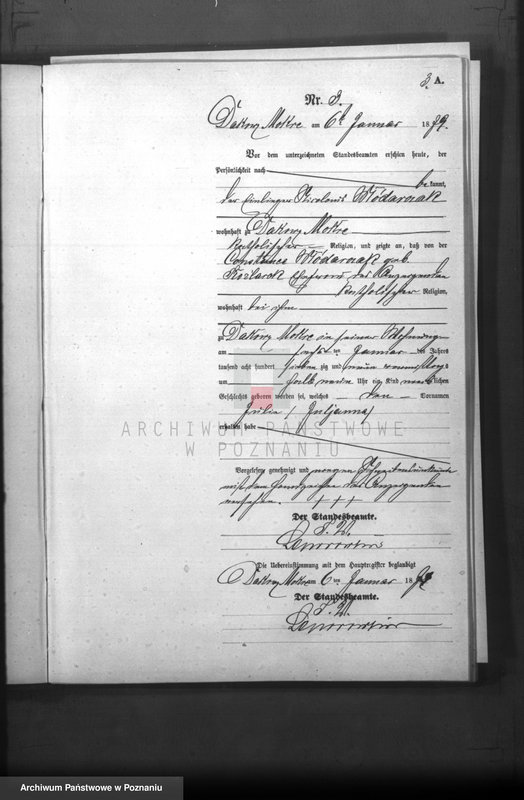 3. A.
Nr. 3.
Dakowy Mokre am 6ten Januar 1879.
Vor dem unterzeichneten Standesbeamten erschien heute, der
Persönlichkeit nach
be kannt,
der Einlieger Włódarczak
wohnhaft zu Dakowy Mokre
katholischer Religion, und zeigte an, daß von der
Constancia Włódarczak geb.
Ehefrau des Anzeigenden
katholischer Religion,
wohnhaft bei ihm
zu Dakowy Mokre in seiner Wohnung
am ten Januar des Jahres
tausend acht hundert siebenzig und neun
um halb neun Uhr ein Kind weiblichen
Geschlechts geboren worden sei, welches den Vornamen
Julia (Juljanna)
erhalten habe
Vorgelesen, genehmigt und wegen
mit dem Handzeichen des Anzeigenden
versehen. + + +
Der Standesbeamte.
Die Uebereinstimmung mit dem Hauptregister beglaubigt
Dakowy Mokre am 6 ten Januar 1879
Der Standesbeamte.
ARCHIWUM PAŃSTWOWE
W POZNANIU
Archiwum Państwowe w Poznaniu